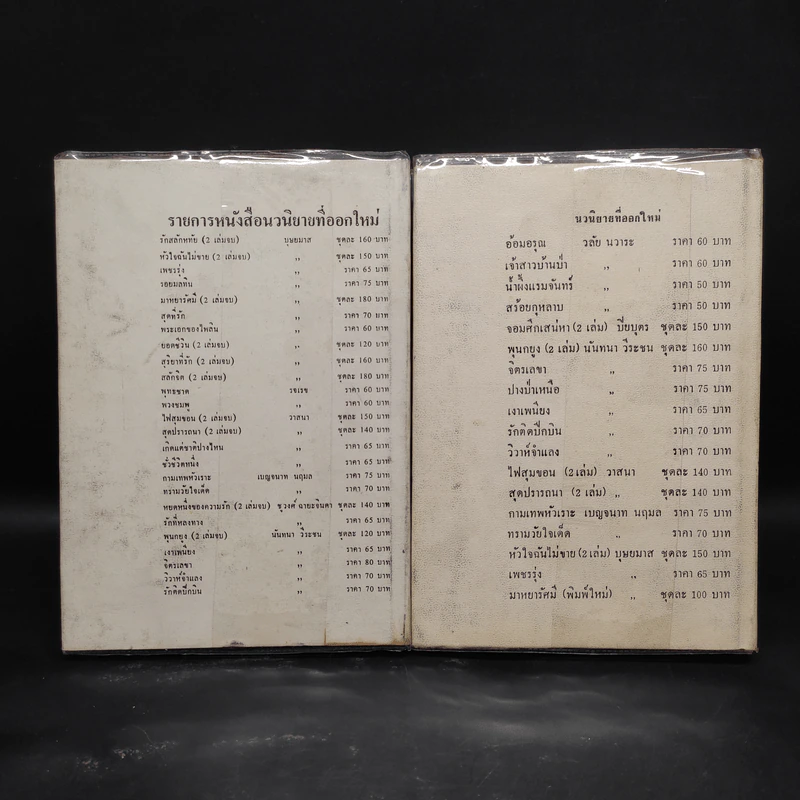 รายการหนังสือนวนิยายที่ออกใหม่
รักสลักหทัย (2 เล่มจบ) บุษยมาส ชุดละ 160 บาท
หัวใจฉันไม่ขาย (2 เล่มจบ) ,, ชุดละ 150 บาท
เพชรรุ่ง ,, ราคา 65 บาท
รอยมลทิน ,, ราคา 75 บาท
มาหยารัศมี (2 เล่มจบ) ,, ชุดละ 180 บาท
สุดที่รัก ,, ราคา 70 บาท
พระเอกของไพลิน ,, ราคา 60 บาท
ยอดชีวิน (2 เล่มจบ) ,, ชุดละ 120 บาท
สุริยาที่รัก (2 เล่มจบ) ,, ชุดละ 160 บาท
สลักจิต (2 เล่มจบ) ,, ชุดละ 180 บาท
พุทธชาด รจเรข ราคา 60 บาท
พวงชมพู ,, ราคา 60 บาท
ไฟสุมขอน (2 เล่มจบ) วาสนา ชุดละ 150 บาท
สุดปรารถนา (2 เล่มจบ) ,, ชุดละ 140 บาท
เกิดแต่ชาติปางไหน ,, ราคา 65 บาท
ชั่วชีวิตหนึ่ง ,, ราคา 65 บาท
กามเทพหัวเราะ เบญจนาท นฤมล ราคา 75 บาท
ทรามวัยใจเด็ด ,, ราคา 70 บาท
หยดหนึ่งของความรัก (2 เล่มจบ) ชุวงศ์ ฉายะจินดา ชุดละ 140 บาท
รักที่หลงทาง ,, ราคา 65 บาท
พุนกยูง (2 เล่มจบ) นันทนา วีระชน ชุดละ 120 บาท
เงาเพนียง ,, ราคา 65 บาท
จิตรเลขา ,, ราคา 80 บาท
วิวาห์จำแลง ,, ราคา 70 บาท
รักติดปีกบิน ,, ราคา 70 บาท
นวนิยายที่ออกใหม่
อ้อมอรุณ วลัย นวาระ ราคา 60 บาท
เจ้าสาวบ้านป่า ,, ราคา 60 บาท
น้ำผึ้งแรมจันทร์ ,, ราคา 50 บาท
สร้อยกุหลาบ ,, ราคา 50 บาท
จอมศึกเสน่หา (2 เล่ม) ปิยบุตร ชุดละ 150 บาท
พุนกยูง (2 เล่ม) นันทนา วีระชน ชุดละ 160 บาท
จิตรเลขา ,, ราคา 75 บาท
ปางป่าเหนือ ,, ราคา 75 บาท
เงาเพนียง ,, ราคา 65 บาท
รักติดปีกบิน ,, ราคา 70 บาท
วิวาห์จำแลง ,, ราคา 70 บาท
ไฟสุมขอน (2 เล่ม) วาสนา ชุดละ 140 บาท
สุดปรารถนา (2 เล่ม) ,, ชุดละ 140 บาท
กามเทพหัวเราะ เบญจนาท นฤมล ราคา 75 บาท
ทรามวัยใจเด็ด ,, ราคา 70 บาท
หัวใจฉันไม่ขาย (2 เล่ม) บุษยมาส ชุดละ 150 บาท
เพชรรุ่ง ,, ราคา 65 บาท
มาหยารัศมี (พิมพ์ใหม่) ,, ชุดละ 100 บาท